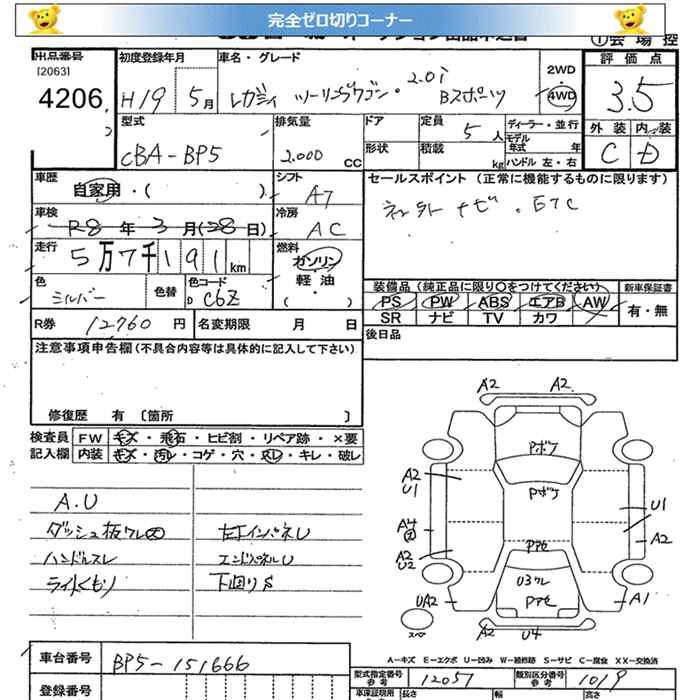 完全ゼロ切りコーナー
①会場控
出品番号 初度登録年月 車名・グレード 2WD 評価点
[2063]
4206 H19 5月 レガシィ ツーリングワゴン・2.0i Bスポーツ 4WD 3.5
型式 排気量 ドア 定員 5人 ディーラー・並行 外装 内装
モデル年式 年
CBA-BP5 2.000 CC 形状 積載 kg ハンドル 左・右 C D
車歴 自家用・( ) シフト A7 セールスポイント (正常に機能するものに限ります)
車検 R8年 3月(28日) 冷房 AC ナビ・ETC
走行 5万7千191km 燃料 ガソリン
軽油
( ・ )
色 シルバー 色替 色コード D C6Z
装備品 (純正品に限り○をつけてください) 新車保証書
PS PW ABS エアB AW 有・無
SR ナビ TV カワ
R券 12760円 名変期限 月 日 後日品
注意事項申告欄(不具合内容等は具体的に記入して下さい)
修復歴 有 〔箇所 〕
検査員 FW キズ・飛石・ヒビ割・リペア跡・×要
記入欄 内装 キズ・汚レ・コゲ・穴・スレ・キレ・破レ
A.U
ダッシュ板ワレ大 左下インパネU
ハンドルスレ エンドパネルU
ライトくもり 下回りS
A2 A2
Pボケ
A2
U1
Pボケ
U1
A4
大
A2
A2
U2
Pアセ
U3ワレ
UA2 Pアセ A1
スペア
A2 U4
A-キズ E-エクボ U-凹み W-補修跡 S-サビ C-腐食 XX-交換済
車台番号 BP5-151666
型式指定番号 参考 12051 類別区分番号 参考 1019
登録番号 車庫証明用 参考 長さ 幅 高さ